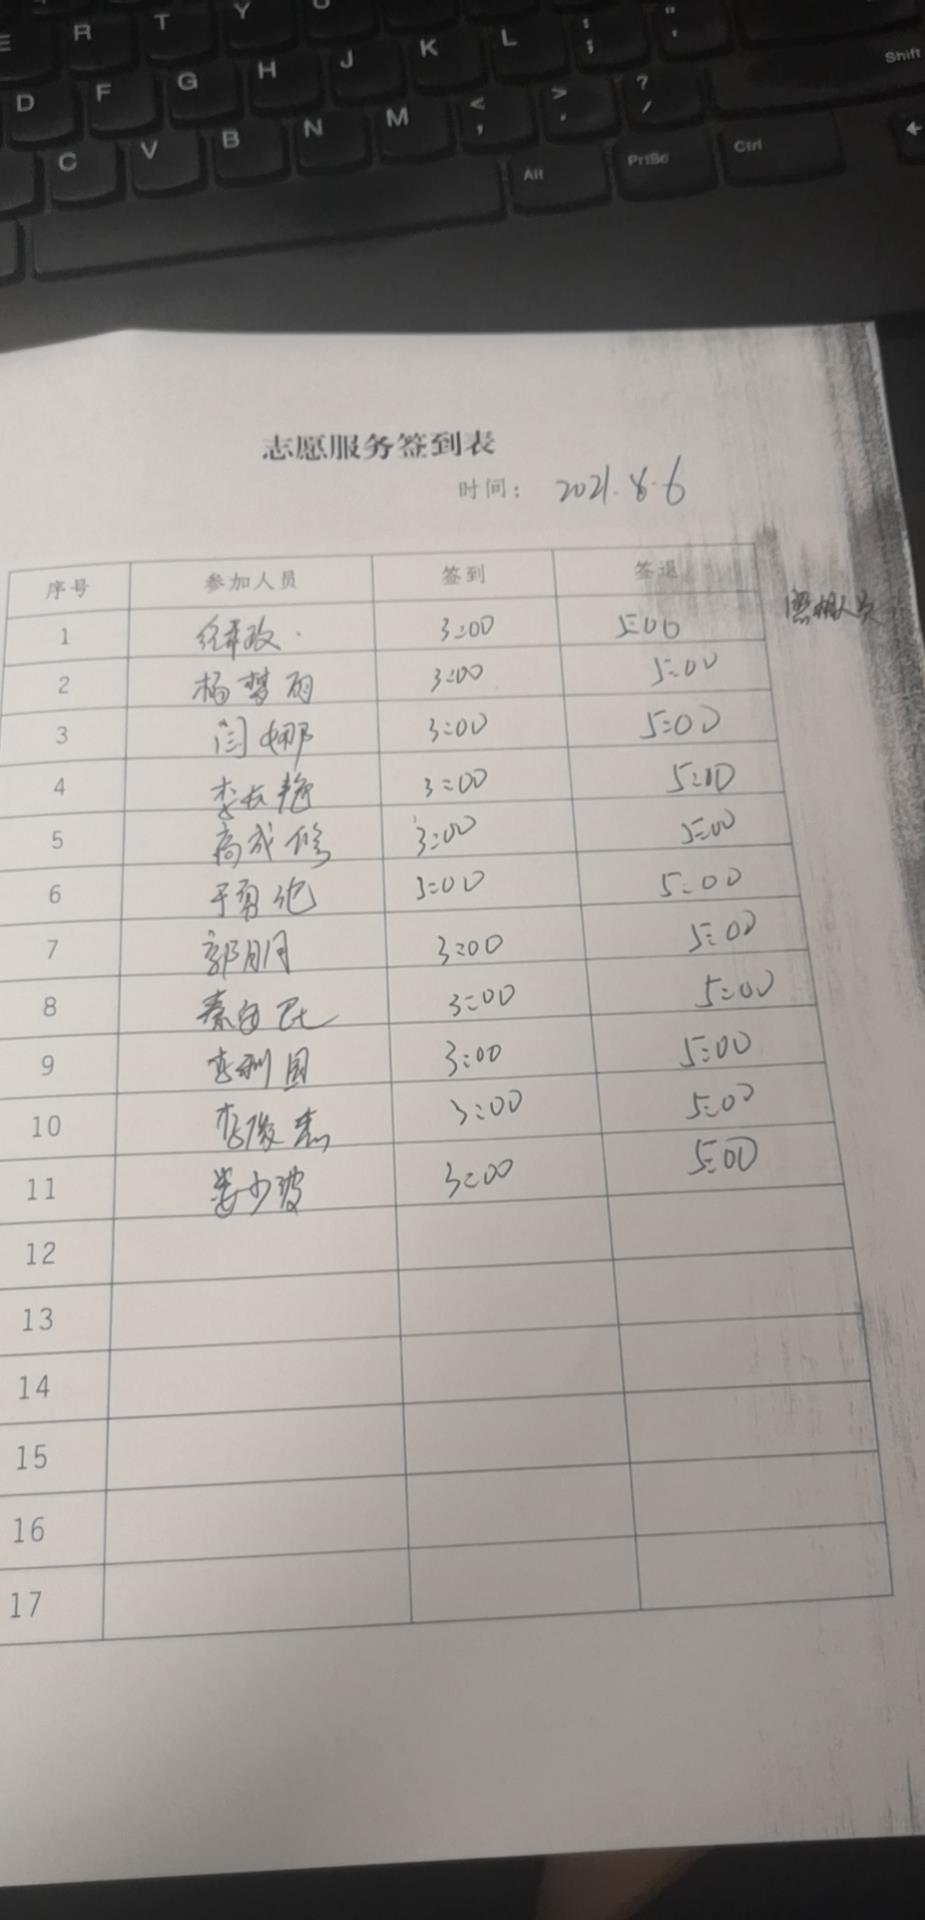 E R T Y U
D F G H J K L : ; " '
Shift
C V B N M < , > . ? /
Alt PrtSc Ctrl
志愿服务签到表
时间： 2021.8.6
序号 参加人员 签到 签退
照相人员
1 3:00 5:00
2 杨梦雨 3:00 5:00
3 闫娜 3:00 5:00
4 李长艳 3:00 5:00
5 高成修 3:00 5:00
6 3:00 5:00
7 郭明月 3:00 5:00
8 3:00 5:00
9 3:00 5:00
10 李俊杰 3:00 5:00
11 娄少波 3:00 5:00
12
13
14
15
16
17